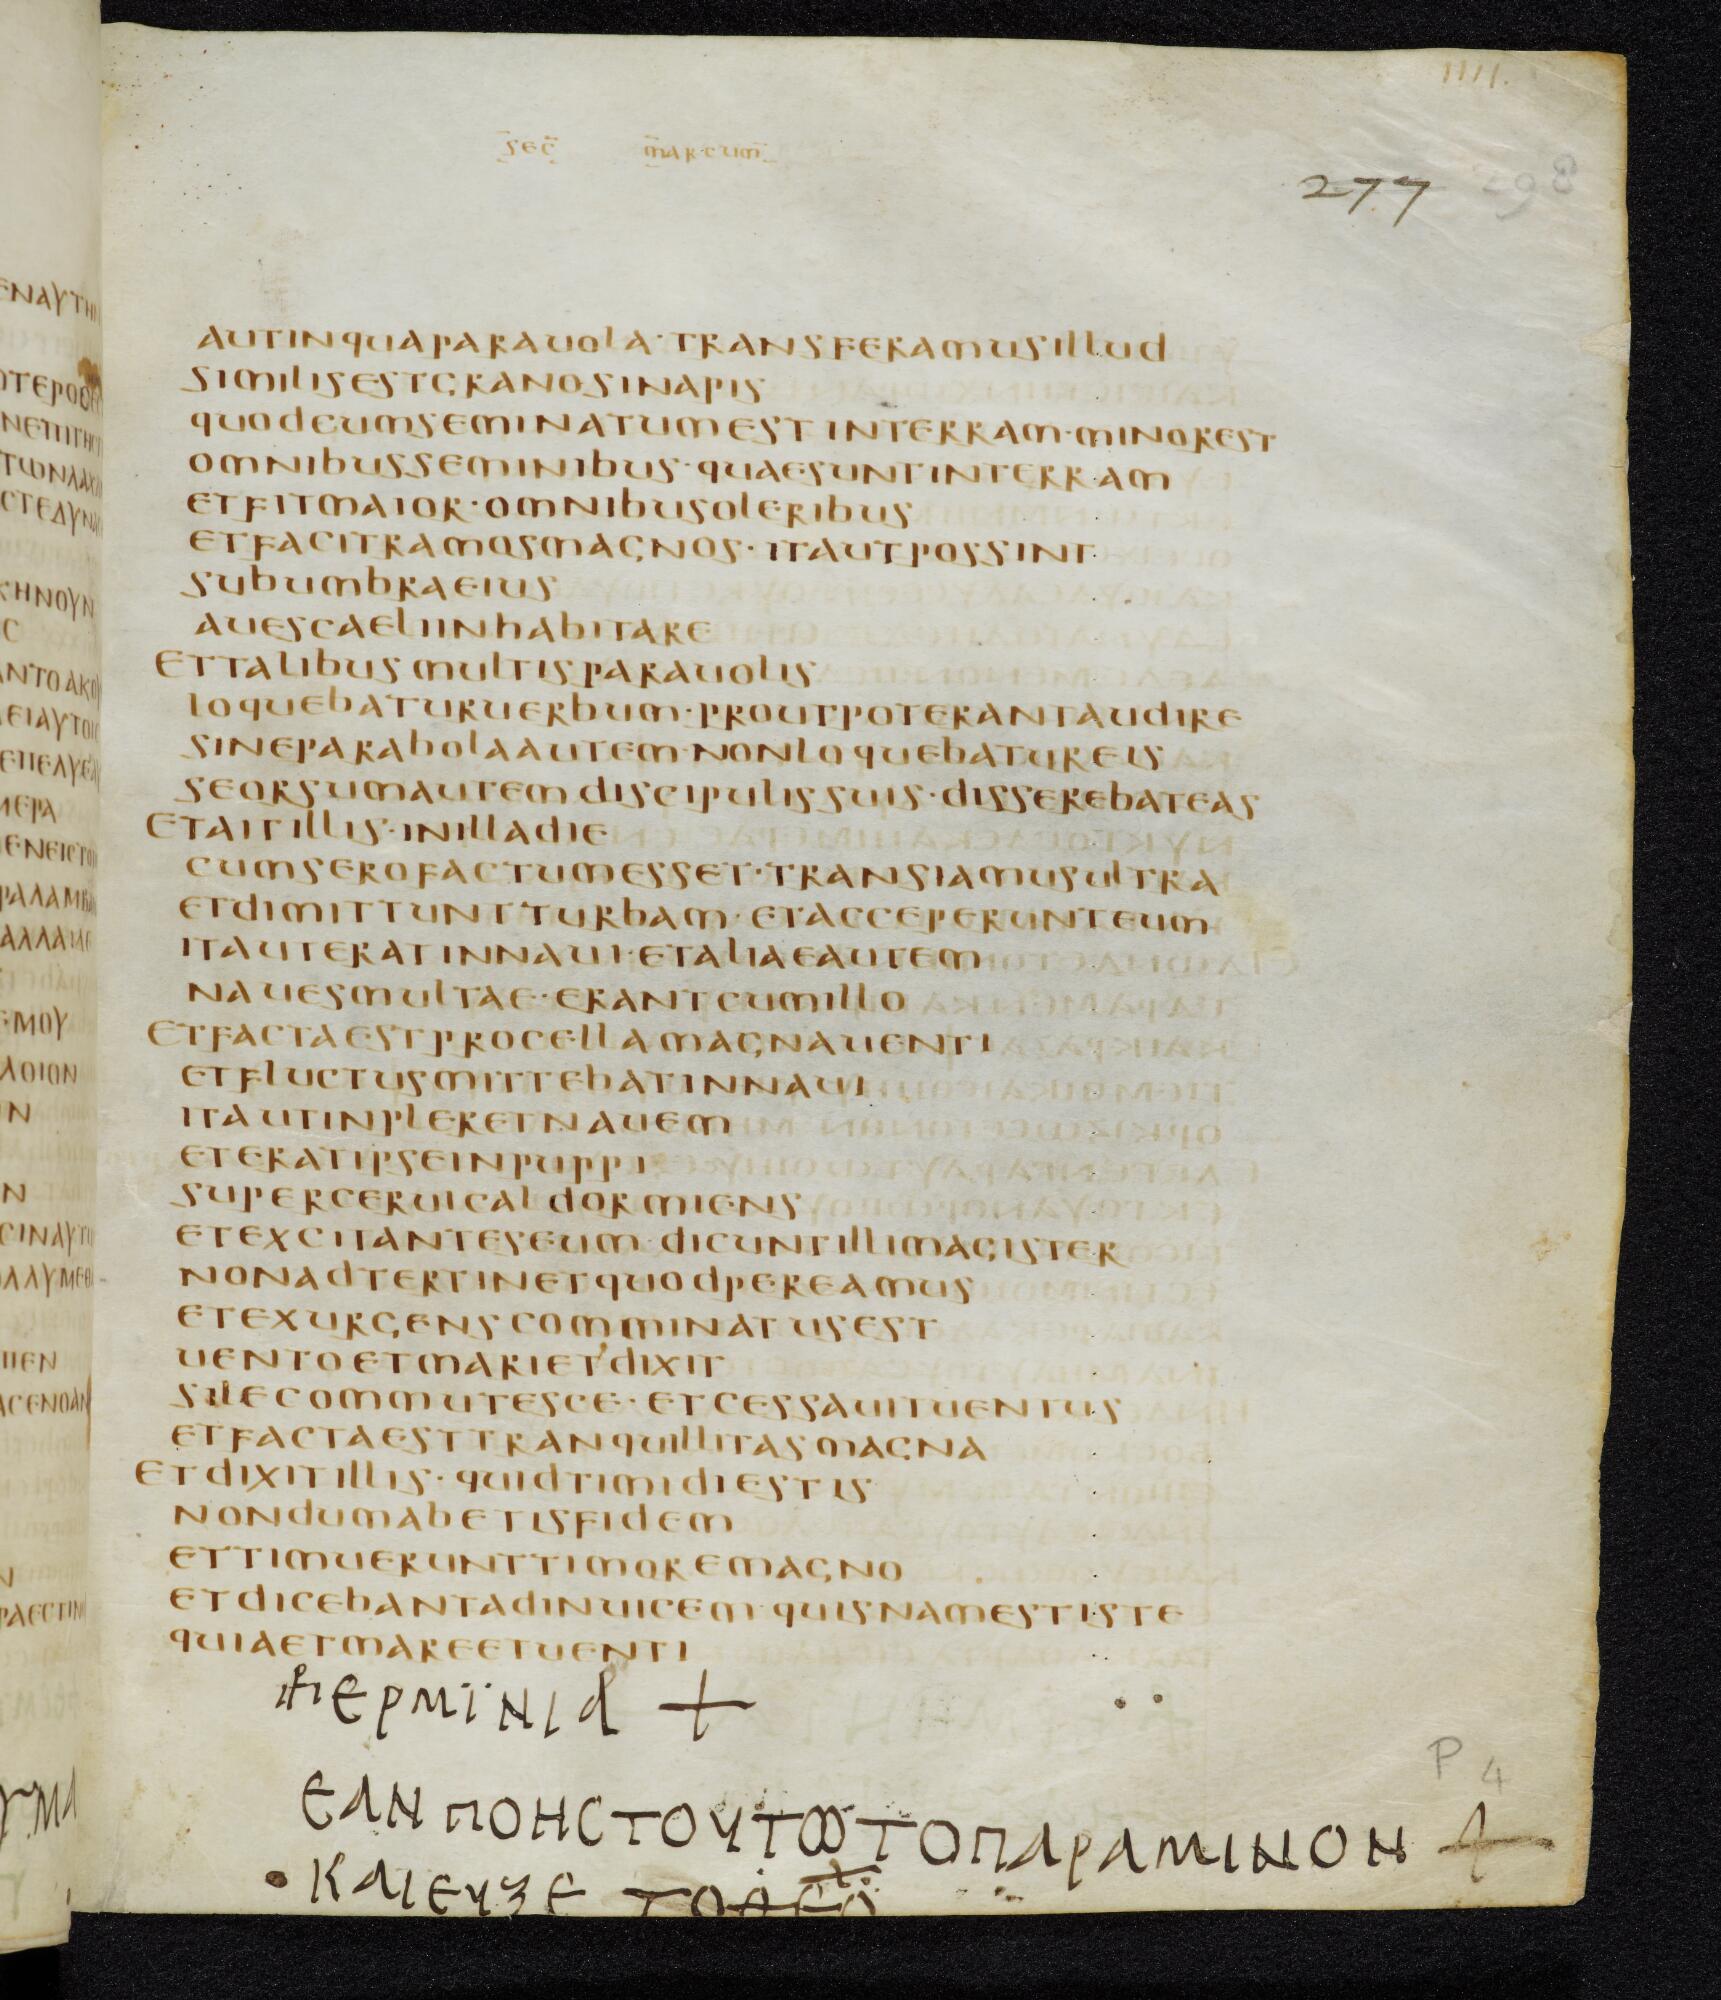 IIII.
SEC MARCUM
277 298
AUTINQUAPARAUOLA·TRANSFERAMUSILLUD
SIMILISESTGRANOSINAPIS
QUODCUMSEMINATUMEST INTERRAM·MINOREST
OMNIBUSSEMINIBUS·QUAESUNTINTERRAM
ETFITMAIOR·OMNIBUSOLERIBUS
ETFACITRAMOSMAGNOS·ITAUTPOSSINT
SUBUMBRAEIUS
AUESCAELIINHABITARE
ETTALIBUS MULTISPARAUOLIS
LOQUEBATURUERBUM·PROUTPOTERANTAUDIRE
SINEPARABOLAAUTEM·NONLOQUEBATUREIS
SEORSUMAUTEMDISCIPULISSUIS·DISSEREBATEAS
ETAITILLIS·INILLADIE
CUMSEROFACTUMESSET·TRANSIAMUSULTRA
ETDIMITTUNTTURBAM·ETACCEPERUNTEUM
ITAUTERATINNAUI·ETALIAEAUTEM
NAUESMULTAE·ERANTCUMILLO
ETFACTAESTPROCELLAMAGNAUENTI
ETFLUCTUSMITTEBATINNAUI
ITAUTINPLERETNAUEM
ETERATIPSEINPUPPI
SUPERCERUICALDORMIENS
ETEXCITANTESEUM·DICUNTILLIMAGISTER
NONADTERTINETQUODPEREAMUS
ETEXURGENSCOMMINATUSEST
UENTOETMARIET'DIXIT
SILECOMMUTESCE·ETCESSAUITUENTUS
ETFACTAESTTRANQUILLITASMAGNA
ETDIXITILLIS·QUIDTIMIDIESTIS
NONDUMABETISFIDEM
ETTIMUERUNTTIMOREMAGNO
ETDICEBANTADINUICEM·QUISNAMESTISTE
QUIAETMAREETUENTI
ΕΡΜΙΝΙΑ +
P 4
ΕΑΝ ΠΟΗС ΤΟΥΤΟ ΤΟ ΠΑΡΑΜΙΝΟΝ +